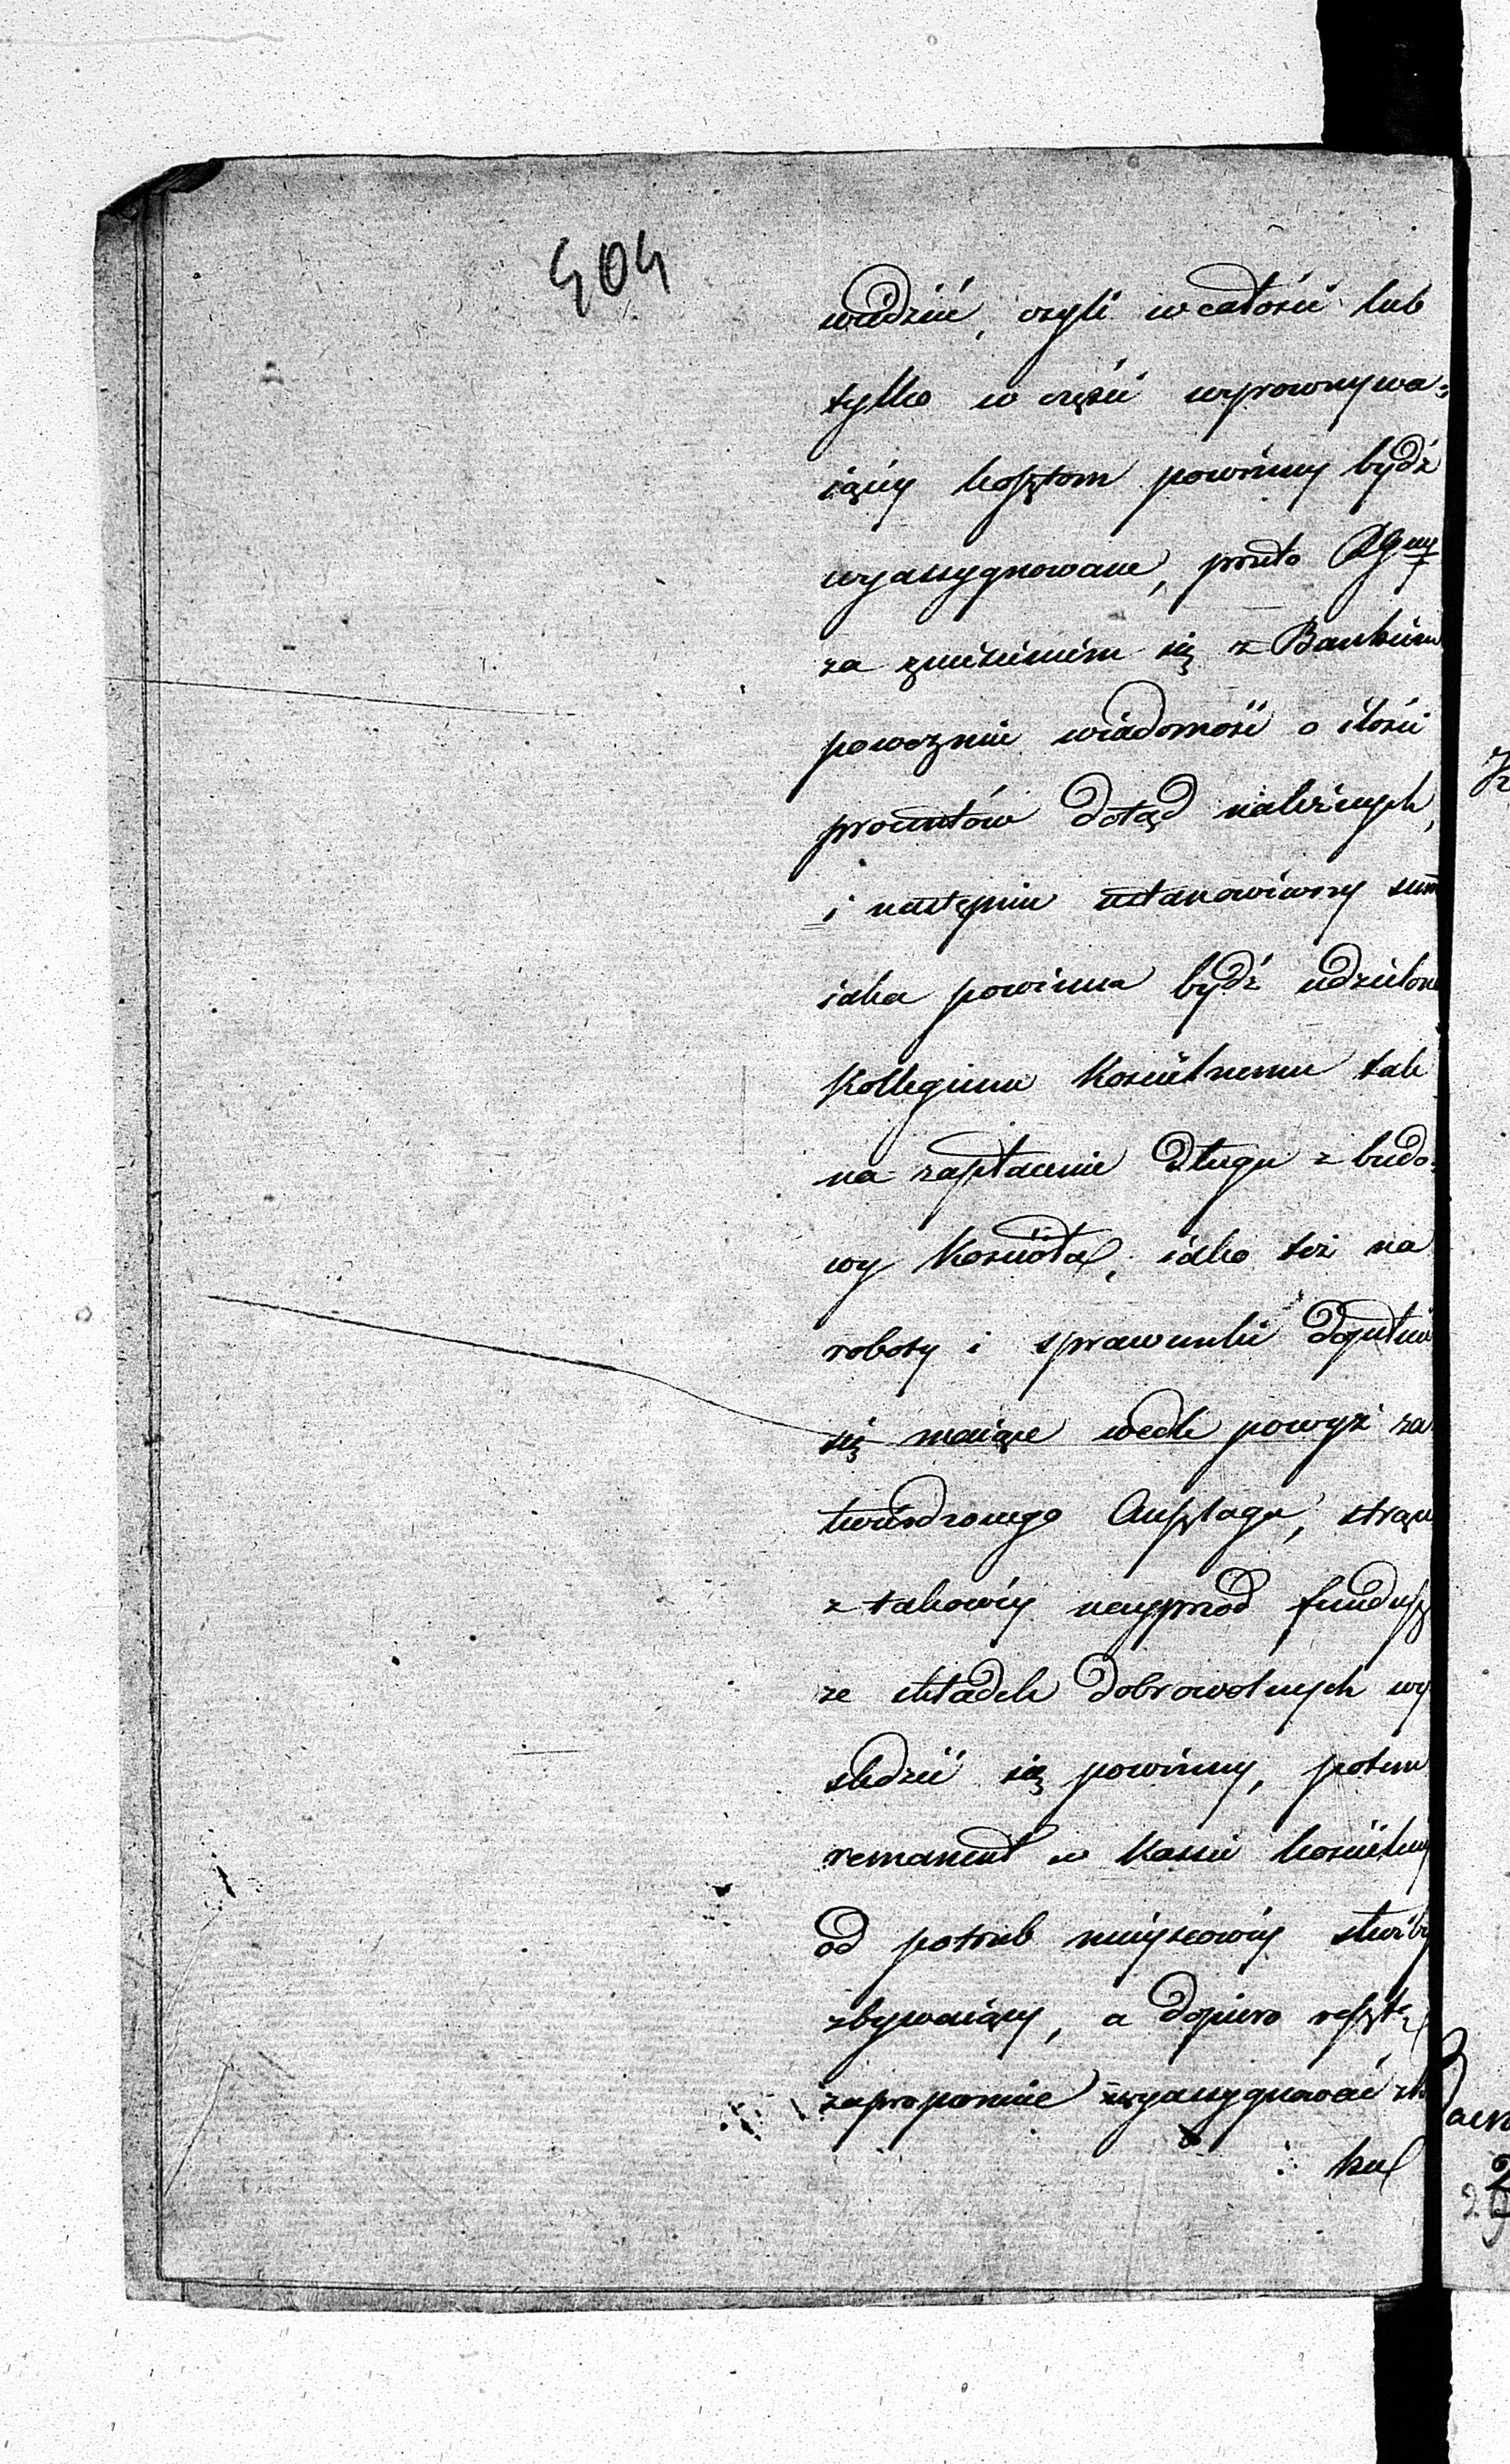 404
wiedzieć, czyli w całości lub
tylko w części wyrównywa=
iącéy kosztom powinny bydź
wyassygnowane, przeto
za zniesieniem się z Bankiem
poweźmie wiadomość o ilości
procentów dotąd należnych,
i następnie ustanowiwszy summ
iaka powinna bydź udzielon
Kollegium Kościelnemu tak
na zapłacenie długu z budo=
wy Kościoła, iako też na
roboty i sprawunki dopełnić
się maiące wedle powyż za
twierdzonego Anszlagu, strąci
z takowéy nayprzód fundusz
ze składek dobrowolnych wy
śledzić się powinny, potem
remanent w Kassie kościelnéy
od potrzeb mieyscowéy służby
zbywaiący, a dopiero resztę
zaproponuie wyassygnować
ku